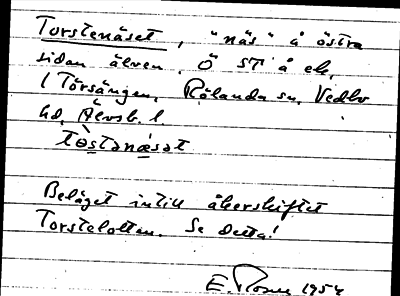 Torstenäset, "näs" å östra
sidan älven. Ö ST å ek.
l Törsängen, Rölanda sn, Vedbo
hd, Älvsb. l
tòstanæsət
Beläget intill åkerskiftet
Torstelotten. Se detta!
E. Rosen 1954